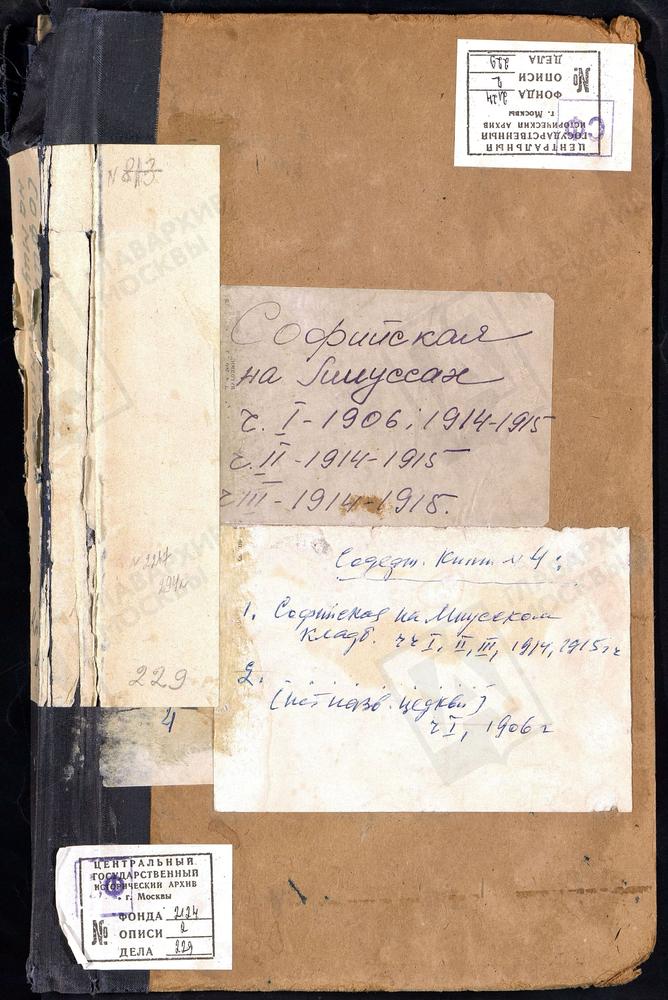 ЦЕНТРАЛЬНЫЙ
ГОСУДАРСТВЕННЫЙ
ИСТОРИЧЕСКИЙ АРХИВ
г. Москвы
ФОНДА 2124
№ ОПИСИ 2
ДЕЛА 229
СФ
Софийская
на Миуссах
ч. I - 1906; 1914-1915
ч. II - 1914-1915
ч III - 1914-1915.
Содерж. Книги № 4:
1. Софийская на Миусском
кладб. чч I, II, III, 1914, 1915 гг
2.
(нет назв. церкви)
ч I, 1906 г
229
4
ЦЕНТРАЛЬНЫЙ
ГОСУДАРСТВЕННЫЙ
ИСТОРИЧЕСКИЙ АРХИВ
г. Москвы
ФОНДА 2124
№ ОПИСИ 2
ДЕЛА 229
ГЛАВАРХИВ
МОСКВЫ